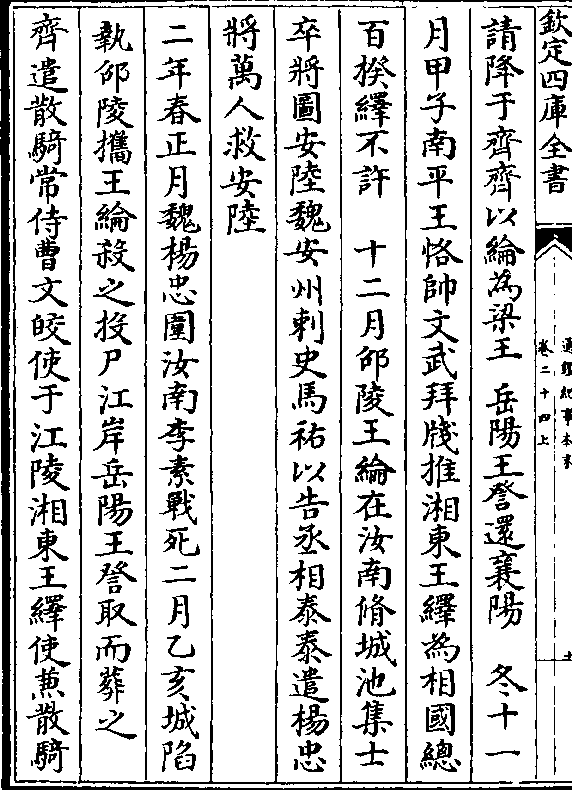 欽定四庫全書
通鑑紀事本末
卷二十四上
十
請降于齊齊以綸為梁王　岳陽王詧還襄陽　冬十一
月甲子南平王恪帥文武拜牋推湘東王繹為相國總
百揆繹不許　十二月邵陵王綸在汝南脩城池集士
卒將圖安陸魏安州刺史馬祐以告丞相泰泰遣楊忠
將萬人救安陸
二年春正月魏楊忠圍汝南李素戰死二月乙亥城陷
執邵陵攜王綸殺之投尸江岸岳陽王詧取而葬之
齊遣散騎常侍曹文皎使于江陵湘東王繹使兼散騎